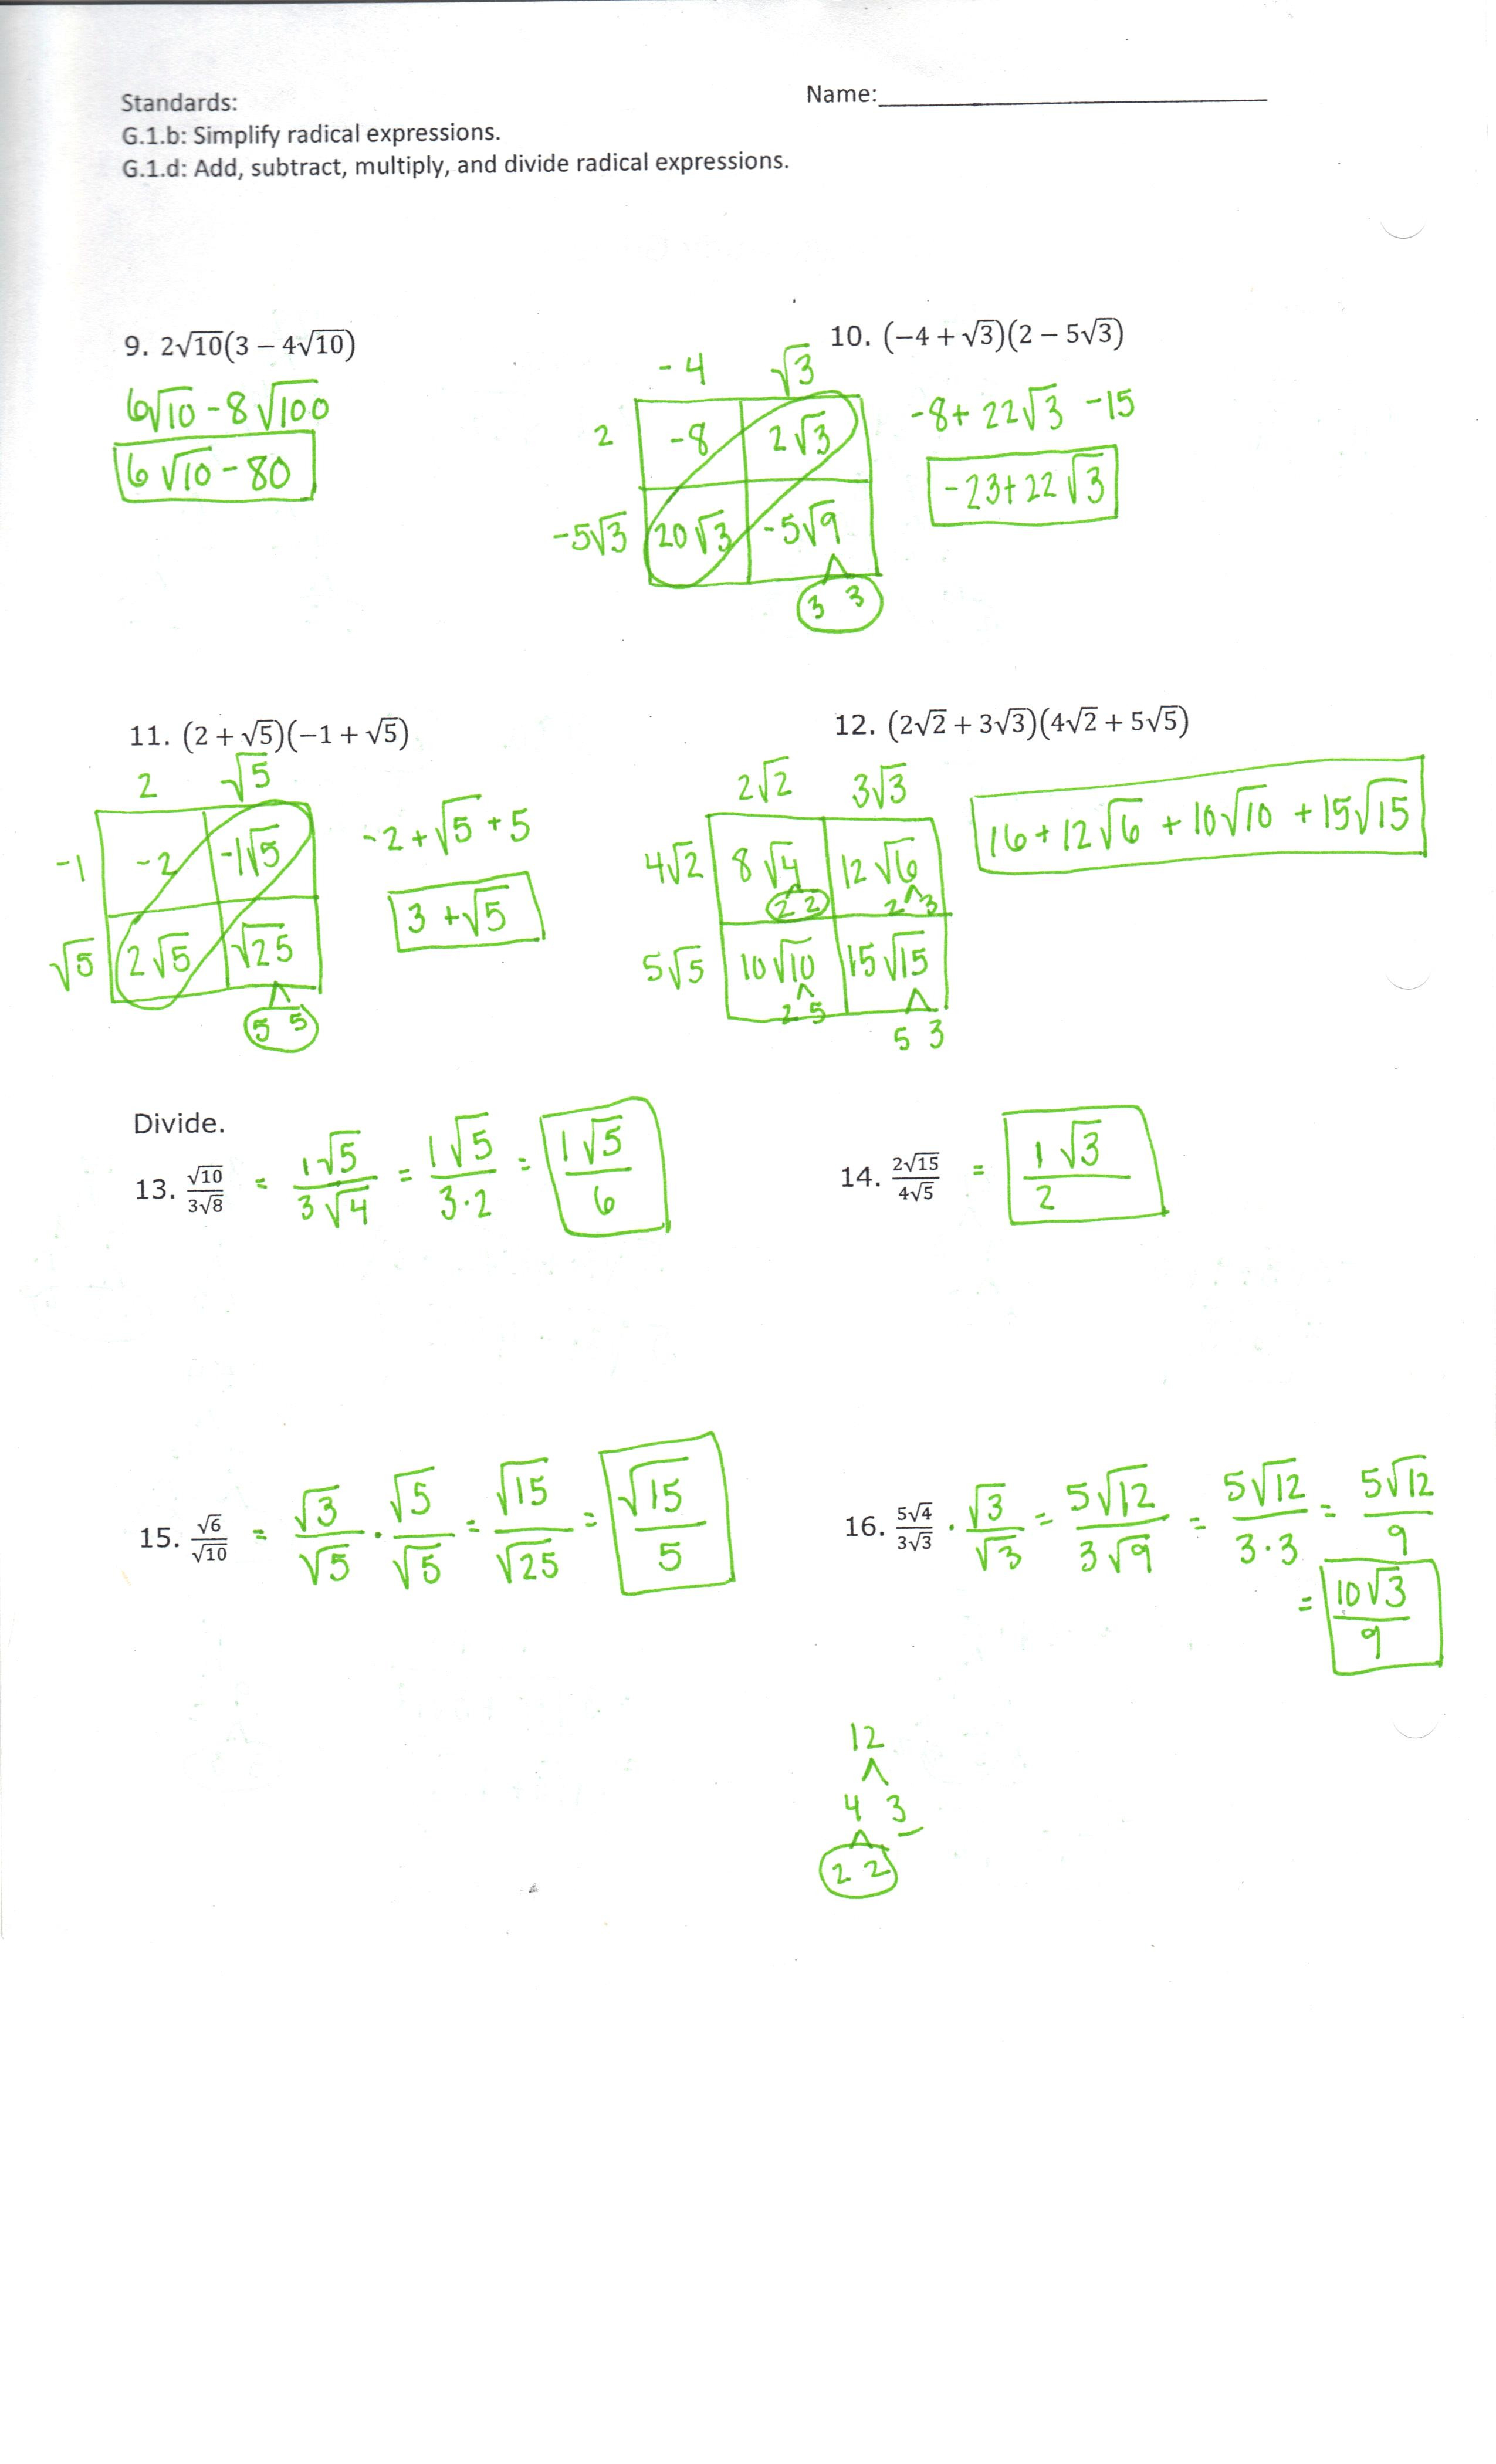 Standards:
Name:
G.1.b: Simplify radical expressions.
G.1.d: Add, subtract, multiply, and divide radical expressions.
9. 2√10(3 − 4√10)
6√10 - 8√100
6√10 - 80
10. (−4 + √3)(2 − 5√3)
-4 √3
2 -8 2√3
-5√3 20√3 -5√9
3 3
-8 + 22√3 - 15
-23 + 22√3
11. (2 + √5)(−1 + √5)
2 √5
-1 -2 -1√5
√5 2√5 √25
5 5
-2 + √5 + 5
3 + √5
12. (2√2 + 3√3)(4√2 + 5√5)
2√2 3√3
4√2 8√4 12√6
2 2 2 3
5√5 10√10 15√15
2 5 5 3
16 + 12√6 + 10√10 + 15√15
Divide.
13. √10/3√8 = 1√5/3√4 = 1√5/3·2 = 1√5/6
14. 2√15/4√5 = 1√3/2
15. √6/√10 = √3/√5 · √5/√5 = √15/√25 = √15/5
16. 5√4/3√3 · √3/√3 = 5√12/3√9 = 5√12/3·3 = 5√12/9
= 10√3/9
12
4 3
2 2